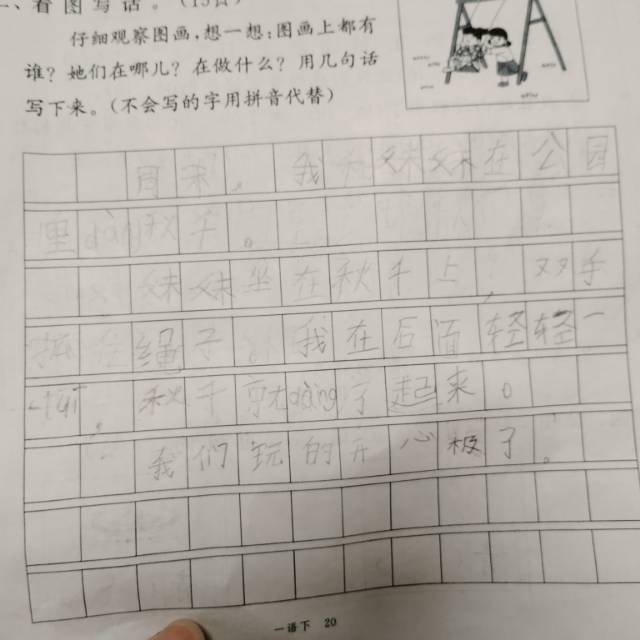 看图写话。(15分)
仔细观察图画,想一想:图画上都有
谁?她们在哪儿?在做什么?用几句话
写下来。(不会写的字用拼音代替)
日末,我和妹妹在公园
里dàng秋千。
妹妹坐在秋千上,双手
抓住绳子,我在后面轻轻一
tuī,秋千就dàng了起来。
我们玩的开心极了。
一语下 20